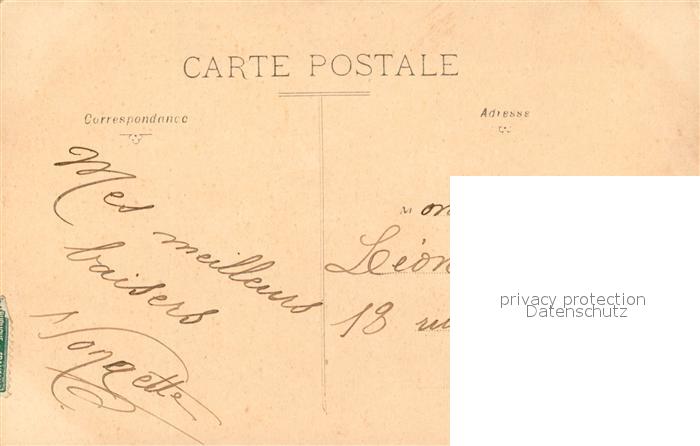 CARTE POSTALE
Correspondance
Adresse
Mes meilleurs
baisers
M
Léon
18
privacy protection
Datenschutz